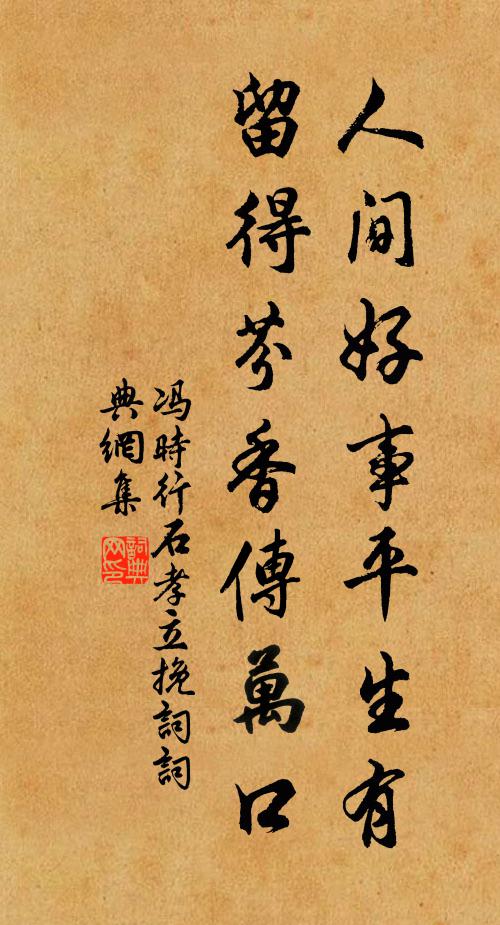 人间好事平生有
留得芬香傳萬口
冯時行石孝立挽詞詞
典網集
詞典網印